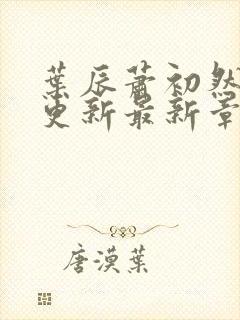 葉辰蕭初然
更新最新章
唐漠葉